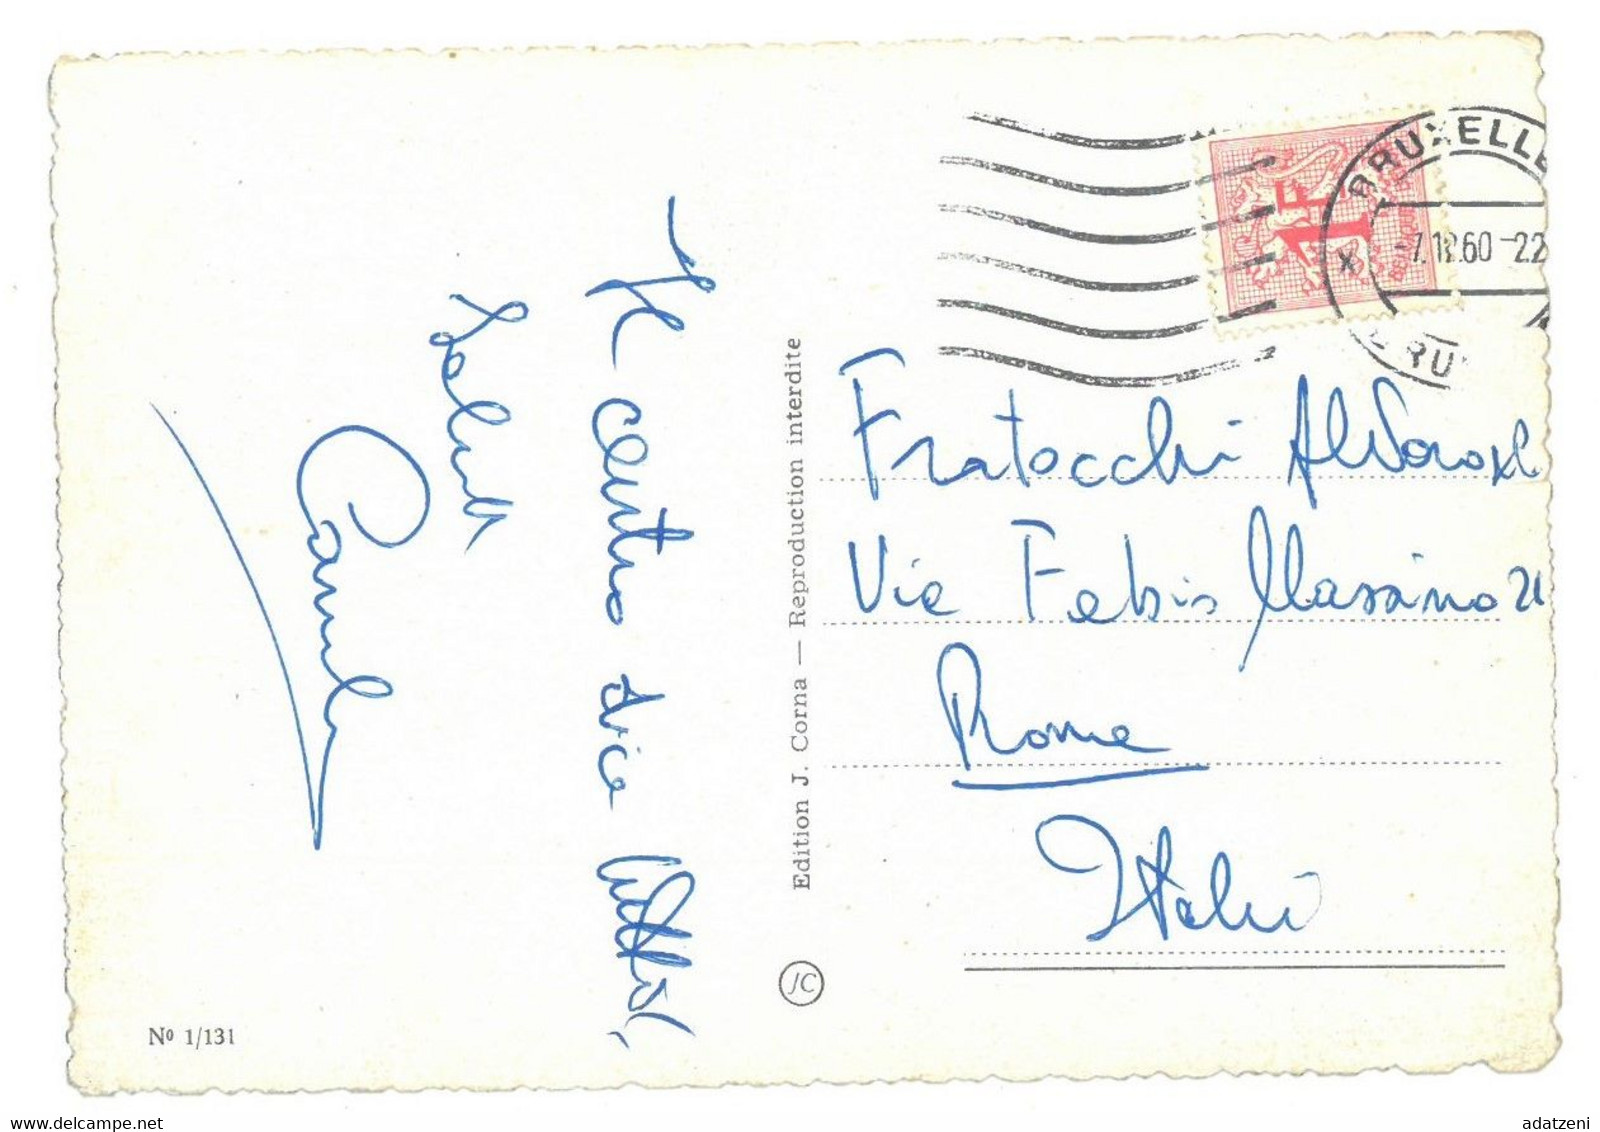 Il centro
Saluti
Edition J. Corna — Reproduction interdite
JC
Nº 1/131
BRUXELLE
-7.12.60-22
BRU
1F
Fratocchi
Via Fabio Massimo
Roma
Italia
www.delcampe.net
adatzeni